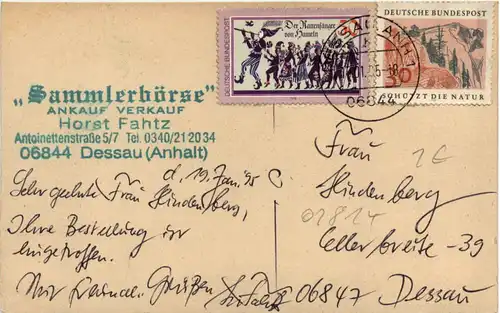 DEUTSCHE BUNDESPOST
Der Rattenfänger
von Hameln
DEUTSCHE BUNDESPOST
SCHÜTZT DIE NATUR
06844
„Sammlerbörse"
ANKAUF VERKAUF
Horst Fahtz
Antoinettenstraße 5/7 Tel. 0340/21 20 34
06844 Dessau (Anhalt)
d. 19. Jan. 95
Sehr geehrte Frau Hindenberg,
Ihre Bestellung ist
eingetroffen.
Mit freundl. Grüßen
Frau
Hindenberg
Cellerbreite 39
06847 Dessau